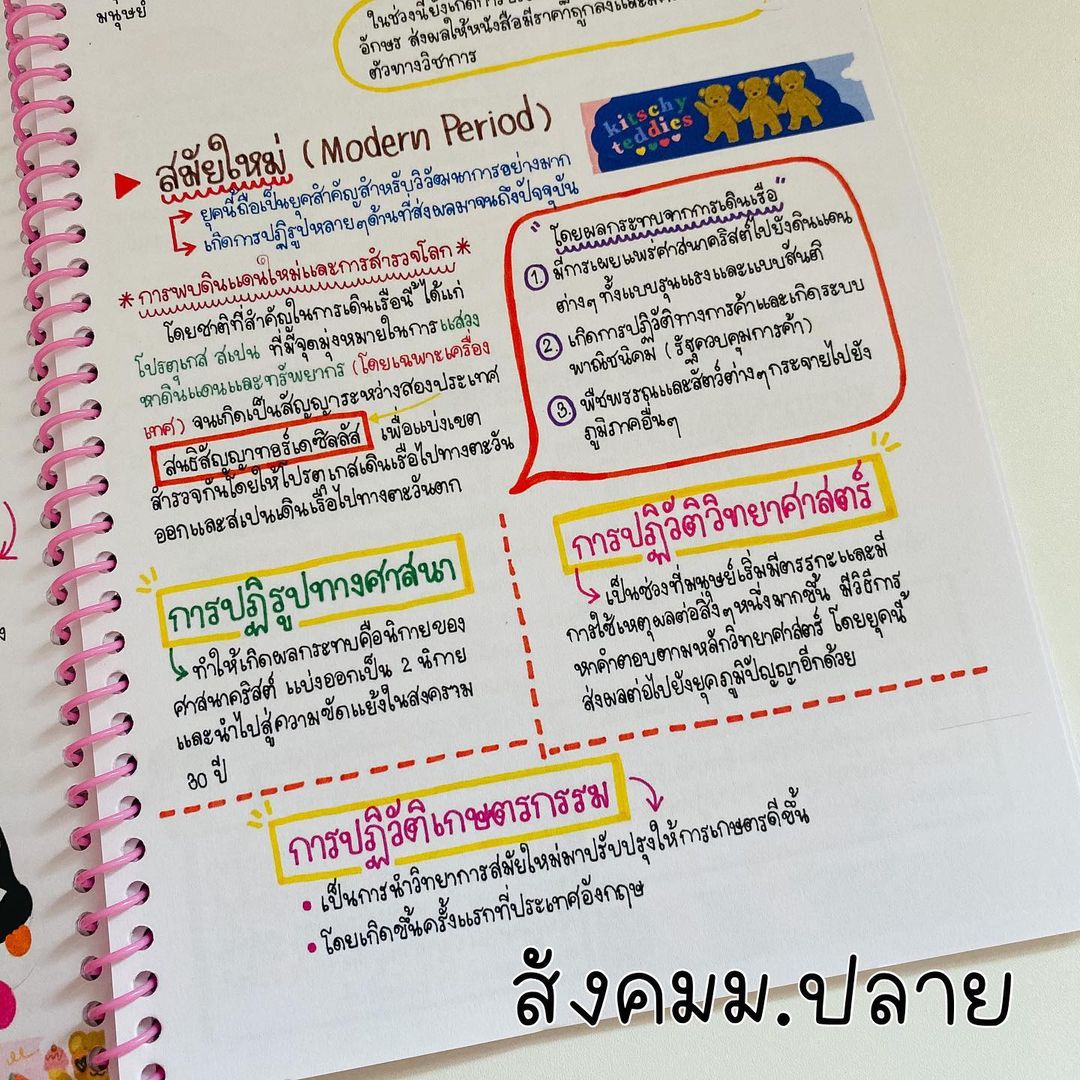 มนุษย์
อักษร ส่งผลให้หนังสือมีราคาถูกลงและ
ตัวทางวิชาการ
kitschy
teddies
สมัยใหม่ (Modern Period)
ยุคนี้ถือเป็นยุคสำคัญสำหรับวิวัฒนาการอย่างมาก
เกิดการปฏิรูปหลายๆด้านที่ส่งผลมาจนถึงปัจจุบัน
*การพบดินแดนใหม่และการสำรวจโลก*
โดยชาติที่สำคัญในการเดินเรือนี้ ได้แก่
โปรตุเกส สเปน ที่มีจุดมุ่งหมายในการแสวง
หาดินแดนและทรัพยากร (โดยเฉพาะเครื่อง
เทศ) จนเกิดเป็นสัญญาระหว่างสองประเทศ
สนธิสัญญาทอร์เดซิลลัส เพื่อแบ่งเขต
สำรวจกันโดยให้โปรตุเกสเดินเรือไปทางตะวัน
ออกและสเปนเดินเรือไปทางตะวันตก
"โดยผลกระทบจากการเดินเรือ"
1. มีการเผยแพร่ศาสนาคริสต์ไปยังดินแดน
ต่างๆ ทั้งแบบรุนแรงและแบบสันติ
2. เกิดการปฏิวัติทางการค้าและเกิดระบบ
พาณิชนิคม (รัฐควบคุมการค้า)
3. พืชพรรณและสัตว์ต่างๆกระจายไปยัง
ภูมิภาคอื่นๆ
การปฏิรูปทางศาสนา
ทำให้เกิดผลกระทบคือนิกายของ
ศาสนาคริสต์ แบ่งออกเป็น 2 นิกาย
และนำไปสู่ความขัดแย้งในสงคราม
30 ปี
การปฏิวัติวิทยาศาสตร์
เป็นช่วงที่มนุษย์เริ่มมีตรรกะและมี
การใช้เหตุผลต่อสิ่งๆหนึ่งมากขึ้น มีวิธีการ
หาคำตอบตามหลักวิทยาศาสตร์ โดยยุคนี้
ส่งผลต่อไปยังยุคภูมิปัญญาอีกด้วย
การปฏิวัติเกษตรกรรม
• เป็นการนำวิทยาการสมัยใหม่มาปรับปรุงให้การเกษตรดีขึ้น
• โดยเกิดขึ้นครั้งแรกที่ประเทศอังกฤษ
สังคมม.ปลาย